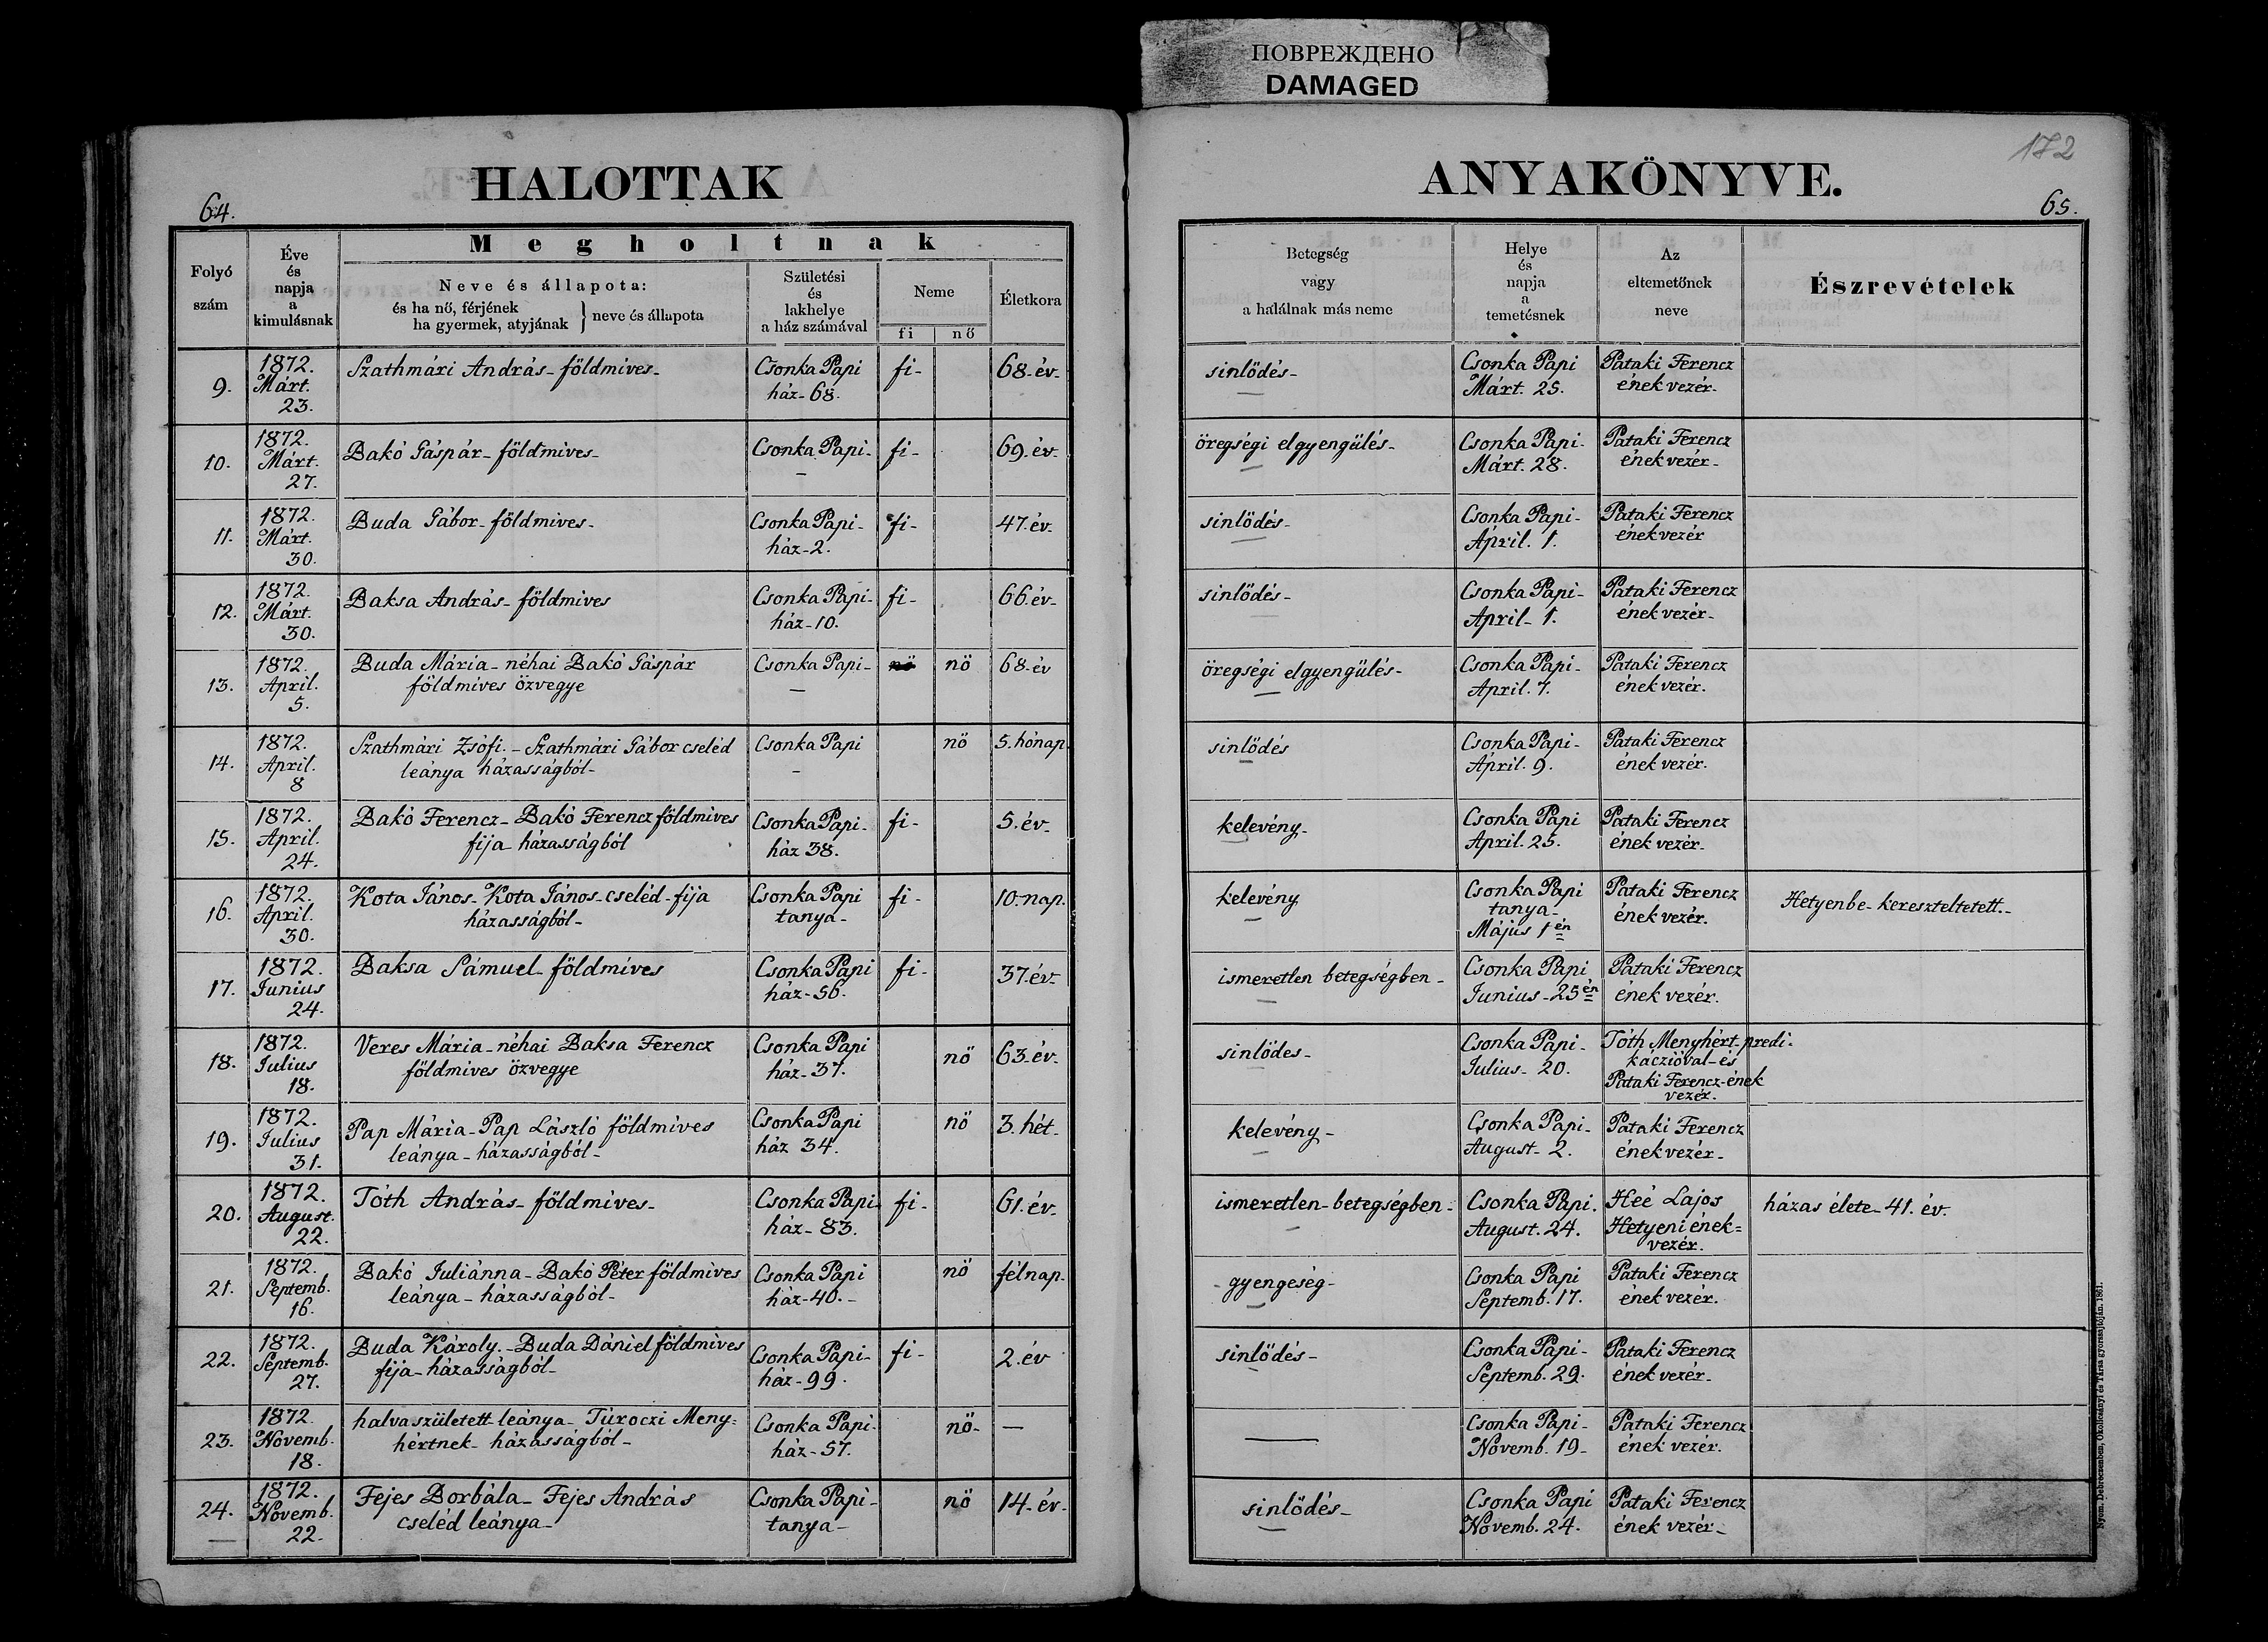 ПОВРЕЖДЕНО
DAMAGED
172
HALOTTAK
ANYAKÖNYVE.
64.
65.
Folyó
szám
Éve
és
napja
a
kimulásnak
Megholtnak
Neve és állapota:
és ha nő, férjének
ha gyermek, atyjának } neve és állapota
Születési
és
lakhelye
a ház számával
Neme
fi nő
Életkora
Betegség
vagy
a halálnak más neme
Helye
és
napja
a
temetésnek
Az
eltemetőnek
neve
Észrevételek
9.
1872.
Márt.
23.
Szathmári András - földmives -
Csonka Papi
ház - 68.
fi -
68 - év -
sinlődés -
Csonka Papi
Márt. 25.
Pataki Ferencz
ének vezér.
10.
1872.
Márt.
27.
Bakó Gáspár - földmives -
Csonka Papi -
fi -
69. év -
öregségi elgyengülés -
Csonka Papi -
Márt. 28.
Pataki Ferencz
ének vezér -
11.
1872.
Márt.
30.
Buda Gábor - földmives -
Csonka Papi -
ház - 2.
fi -
47. év -
sinlődés -
Csonka Papi -
April. 1.
Pataki Ferencz
ének vezér
12.
1872.
Márt.
30.
Baksa András - földmives
Csonka Papi -
ház - 10.
fi -
66. év -
sinlődés -
Csonka Papi -
April - 1.
Pataki Ferencz
ének vezér -
13.
1872.
April.
5.
Buda Mária - néhai Bakó Gáspár
földmives özvegye
Csonka Papi -
nő
68. év
öregségi elgyengülés -
Csonka Papi -
April. 7.
Pataki Ferencz
ének vezér.
14.
1872.
April.
8
Szathmári Zsófi. - Szathmári Gábor cseléd
leánya házasságból -
Csonka Papi
-
nő
5. hónap.
sinlődés
Csonka Papi -
April. 9.
Pataki Ferencz
ének vezér.
15.
1872.
April.
24.
Bakó Ferencz - Bakó Ferencz földmives
fija - házasságból
Csonka Papi -
ház 38.
fi -
5. év -
kelevény -
Csonka Papi
April. 25.
Pataki Ferencz
ének vezér -
16.
1872.
April.
30.
Kota János - Kota János - cseléd - fija
házasságból -
Csonka Papi
tanya -
fi -
10. nap.
kelevény
Csonka Papi
tanya -
Május 1 én
Pataki Ferencz
ének vezér.
Hetyenbe - kereszteltetett. -
17.
1872.
Junius
24.
Baksa Sámuel - földmives
Csonka Papi
ház - 56.
fi -
37. év -
ismeretlen betegségben -
Csonka Papi
Junius - 25 én
Pataki Ferencz
ének vezér.
18.
1872.
Julius
18.
Veres Mária - néhai Baksa Ferencz
földmives özvegye
Csonka Papi
ház - 37.
nő
63. év -
sinlődes -
Csonka Papi -
Julius - 20.
Tóth Menyhért - predi -
káczióval - és
Pataki Ferencz - ének
vezér.
19.
1872.
Julius
31.
Pap Mária - Pap László földmives
leánya - házasságból -
Csonka Papi
ház 34.
nő
3. hét -
kelevény -
Csonka Papi -
August - 2.
Pataki Ferencz
ének vezér -
20.
1872.
August.
22.
Tóth András - földmives -
Csonka Papi -
ház - 83.
fi -
61. év -
ismeretlen - betegségben -
Csonka Papi.
August. 24.
Heé Lajos
Hetyeni ének =
vezér.
házas élete - 41. év.
21.
1872.
Septemb.
16.
Bakó Juliánna - Bakó Péter földmives
leánya - házasságból -
Csonka Papi
ház - 40. -
nő
félnap.
gyengeség -
Csonka Papi
Septemb. 17.
Pataki Ferencz
ének vezér.
22.
1872.
Septemb.
27.
Buda Károly. - Buda Dániel földmives
fija - házasságból -
Csonka Papi -
ház - 99.
fi -
2. év
sinlődés -
Csonka Papi -
Septemb. 29.
Pataki Ferencz
ének vezér -
23.
1872.
Novemb.
18.
halva született leánya - Túroczi Meny =
hértnek - házasságból -
Csonka Papi -
ház - 57.
nő -
—
—
Csonka Papi -
Novemb. 19 -
Pataki Ferencz
ének vezér.
24.
1872.
Novemb.
22.
Fejes Borbála - Fejes András
cseléd leánya -
Csonka Papi -
tanya -
nő
14 - év -
sinlődés -
Csonka Papi
Novemb. 24.
Pataki Ferencz
ének vezér -